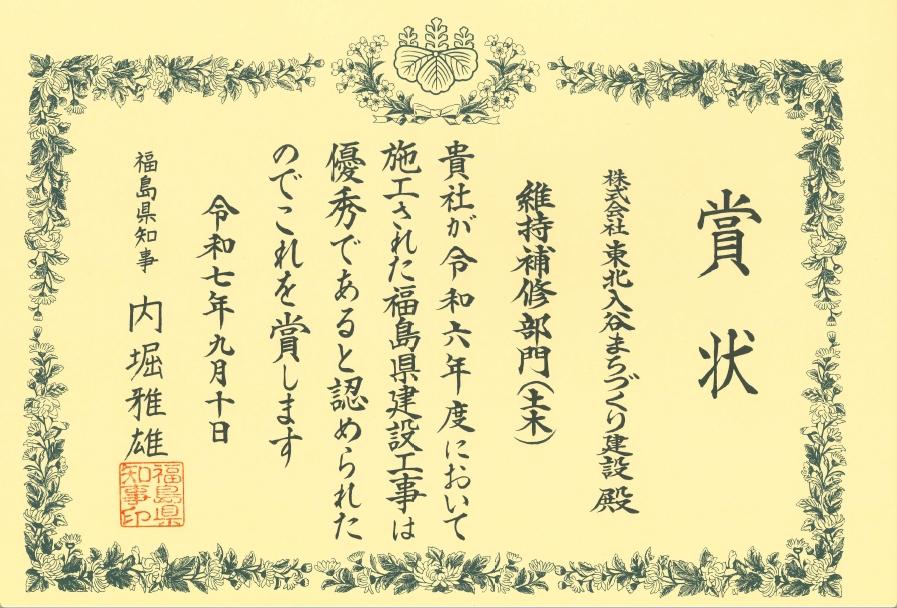 賞状
株式会社 東北入谷まちづくり建設 殿
維持補修部門(土木)
貴社が令和六年度において
施工された福島県建設工事は
優秀であると認められた
のでこれを賞します
令和七年九月十日
福島県知事 内堀雅雄
福島県知事印